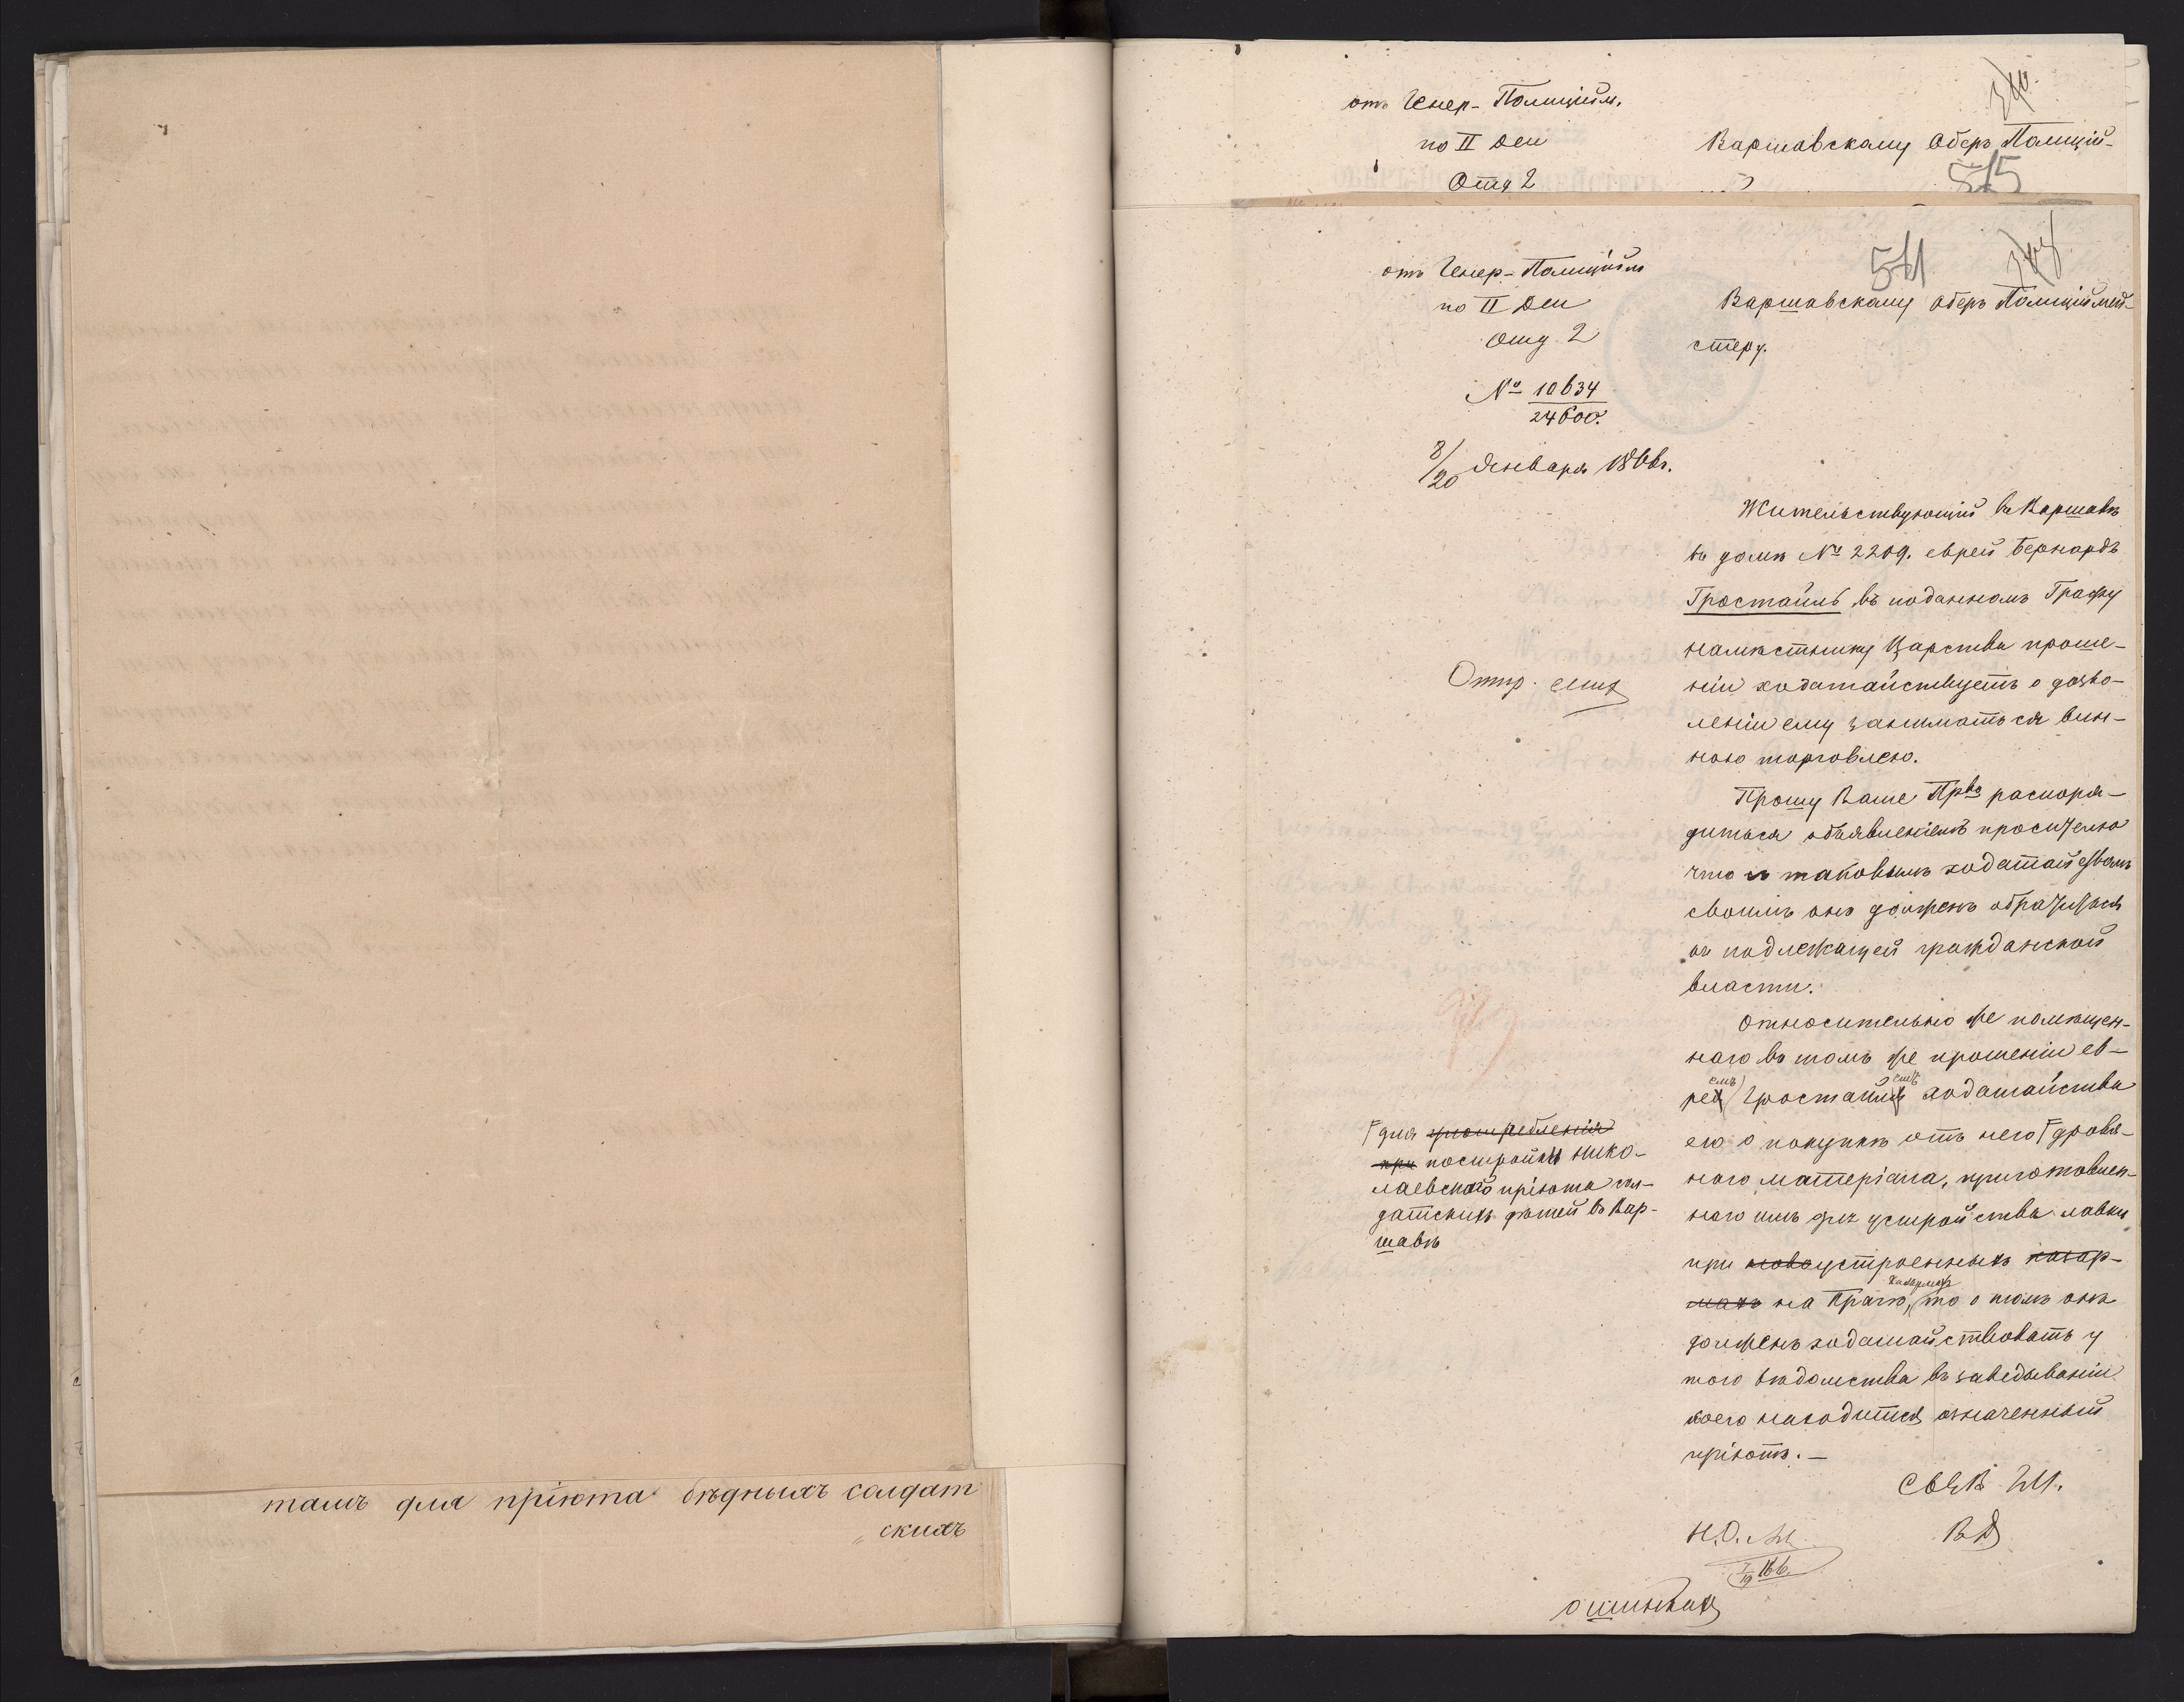 тамъ для пріюта бѣдныхъ солдат
„скихъ
отъ Генер-Полиціим.
по II Дел
Отд 2
340.
Варшавскому Оберъ Полицій-
515
отъ Генер-Полиціим
по II Дел
Отд 2
№ 10634
24600.
8/20 Января 1866г.
511
Варшавскому Оберъ Полиціймей-
стеру.
Жительствующій въ Варшавѣ
въ домѣ № 2209. еврей Бернардъ
Гростайлъ въ поданномъ Графу
намѣстнику Царства проше-
ніи ходатайствуетъ о дозво-
леніи ему заниматься вин-
ною торговлею.
Прошу Ваше Прво распоря-
диться объявленіемъ просителю
что съ таковымъ ходатайствомъ
своимъ онъ долженъ обратиться
къ подлежащей гражданской
власти.
Относительно же помѣщен-
наго въ томъ же прошеніи ев-
реемъ Гростайлемъ ходатайства
его о покупкѣ отъ него Г дровя-
наго матеріала, приготовлен-
наго имъ для устройства лавки
при новоустроенныхъ казар-
махъ на Прагѣ, казармахъ то о томъ онъ
долженъ ходатайствовать у
того вѣдомства въ завѣдываніи
коего находится означенный
пріютъ. —
Отпр.
Г для употребленія
при постройкѣ Нико-
лаевскаго пріюта сол-
датскихъ дѣтей въ Вар-
шавѣ
Н.О.